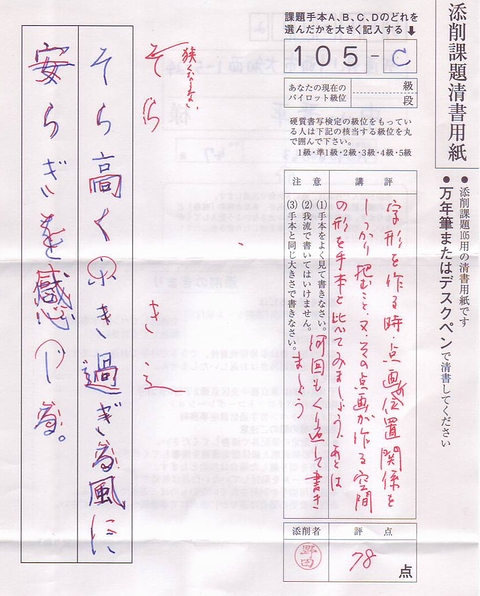 添削課題清書用紙
● 添削課題105用の清書用紙です
● 万年筆またはデスクペンで清書してください
課題手本A、B、C、Dのどれを
選んだかを大きく記入する
105-C
あなたの現在の
パイロット級位
級
段
硬質書写検定の級位をもってい
る人は下記の該当する級位を丸
で囲んで下さい。
1級・準1級・2級・3級・4級・5級
講評
字形を作る時、点画の位置関係を
しっかり把むこと、又、その点画が作る空間
の形を手本と比べてみましょう。あとは
何回もくり返して書き
ましょう
注意
(1) 手本をよく見て書きなさい。
(2) 我流で書いてはいけません。
(3) 手本と同じ大きさで書きなさい。
評点
78点
添削者
狭くならない
そら
き
辶
そら高く吹き過ぎる風に
安らぎを感じる。